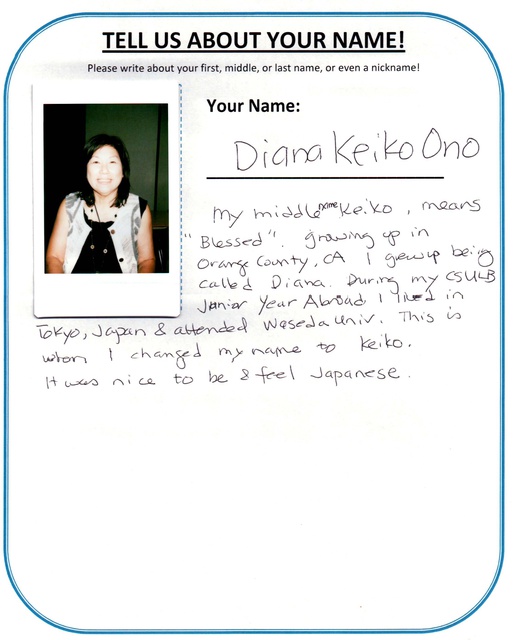 TELL US ABOUT YOUR NAME!
Please write about your first, middle, or last name, or even a nickname!
Your Name:
Diana Keiko Ono
My middle name Keiko, means
"Blessed". Growing up in
Orange County, CA I grew up being
called Diana. During my CSULB
Junior Year Abroad I lived in
Tokyo, Japan & attended Waseda Univ. This is
when I changed my name to Keiko.
It was nice to be & feel Japanese.